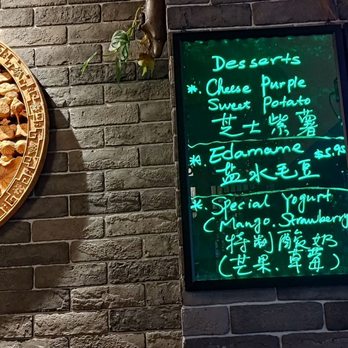 Desserts
*. Cheese Purple
Sweet Potato
芝士紫薯
*. Edamame $5.95
盐水毛豆
*. Special Yogurt
(Mango. Strawberry
特制酸奶
(芒果.草莓)